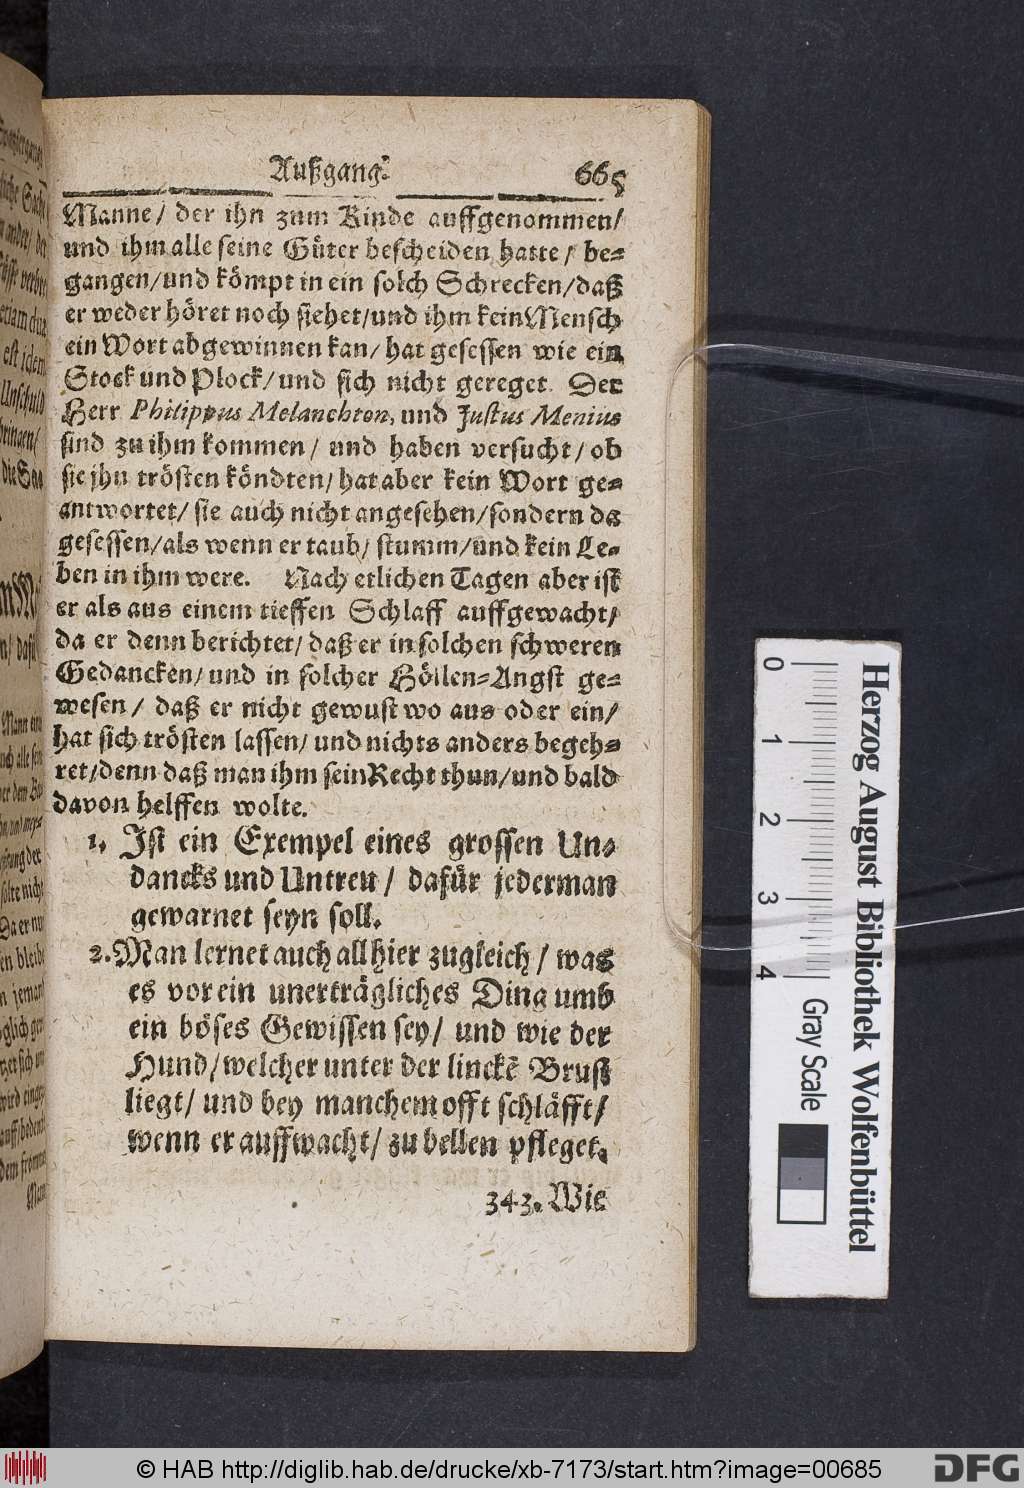 Außgang. 665
Manne/ der ihn zum Kinde auffgenommen/
und ihm alle seine Güter bescheiden hatte/ be-
gangen/und kömpt in ein solch Schrecken/daß
er weder höret noch siehet/und ihm kein Mensch
ein Wort abgewinnen kan/ hat gesessen wie ein
Stock und Plock/ und sich nicht gereget. Der
Herr Philippus Melanchton, und Justus Menius
sind zu ihm kommen/ und haben versucht/ ob
sie jhn trösten köndten/ hat aber kein Wort ge-
antwortet/ sie auch nicht angesehen/sondern da
gesessen/als wenn er taub/ stumm/und kein Le-
ben in ihm were. Nach etlichen Tagen aber ist
er als aus einem tieffen Schlaff auffgewacht/
da er denn berichtet/ daß er in solchen schweren
Gedancken/ und in solcher Höllen-Angst ge-
wesen/ daß er nicht gewust wo aus oder ein/
hat sich trösten lassen/ und nichts anders begeh-
ret/denn daß man ihm sein Recht thun/und bald
davon helffen wolte.
1. Ist ein Exempel eines grossen Un-
dancks und Untreu/ dafür jederman
gewarnet seyn soll.
2. Man lernet auch all hier zugleich/ was
es vor ein unerträgliches Ding umb
ein böses Gewissen sey/ und wie der
Hund/welcher unter der linckẽ Brust
liegt/ und bey manchem offt schläfft/
wenn er auffwacht/ zu bellen pfleget.
343. Wie
0 1 2 3 4 Gray Scale
Herzog August Bibliothek Wolfenbüttel
© HAB http://diglib.hab.de/drucke/xb-7173/start.htm?image=00685
DFG